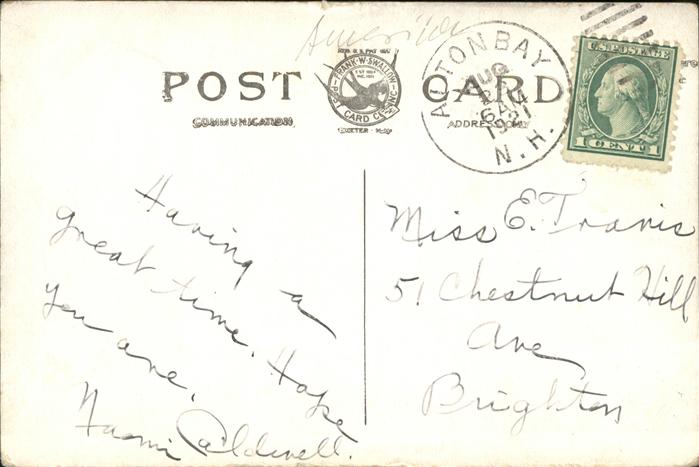 American
POST CARD
COMMUNICATION
ADDRESS ONLY
FRANK W. SWALLOW
POST CARD CO. INC.
EXETER - N.H.
ALTON BAY
AUG
6 AM
1921
N. H.
U.S. POSTAGE
1 CENT 1
Having a
great time. Hope
you are.
Naomi Caldwell.
Miss E. Travis
51 Chestnut Hill
Ave
Brighton